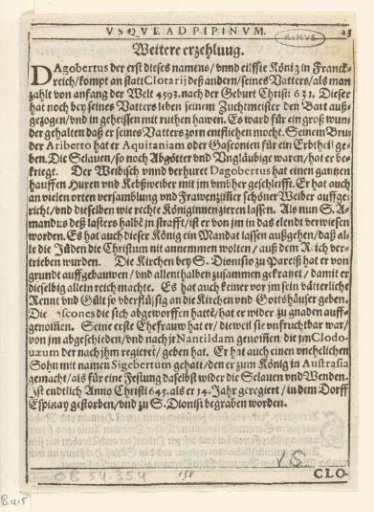 VSQVE AD PIPINVM.
Weitere erzehlung.
DAgobertus der erst dieses namens / vnnd eilffte König in Franck-
reich / kompt an statt Clotarij deß andern / seines Vatters / als man
zahlt von anfang der Welt 4593. nach der Geburt Christi 631. Dieser
hat noch bey seines Vatters leben seinem Zuchtmeister den Bart auß-
gezogen / vnd in geheissen mit ruthen hawen. Es ward für ein groß wun-
der gehalten daß er seines Vatters zorn entfliehen mocht. Seinem Bru-
der Ariberto hat er Aquitaniam oder Gasconien für ein Erbtheil ge-
ben. Die Sclauen / so noch Abgötter vnd Vngläubige waren / hat er be-
kriegt. Der Weibisch vnnd verhuret Dagobertus hat einen gantzen
hauffen Huren vnd Kebßweiber mit jm vmbher geschleifft. Er hat auch
an vielen orten versamblung vnd Frawenzimer schöner Weiber auffge-
richt / vnd dieselben wie rechte Königinnen zieren lassen. Als nun S. A-
mandus deß lasters halbē jn strafft / ist er von jm in das elendt verwiesen
worden. Es hat auch dieser König ein Mandat lassen außgehen / daß al-
le die Jüden die Christum nit annemmen wolten / auß dem R. ich ver-
trieben wurden. Die Kirchen bey S. Dionysio zu Pariß hat er von
grundt auffgebauwen / vnd allenthalben zusammen gekratzt / damit er
dieselbig allein reich machte. Es hat auch keiner vor jm sein vätterliche
Rennt vnd Gült so vberflüssig an die Kirchen vnd Gottshäuser geben.
Die ascones die sich abgeworffen hattē / hat er wider zu gnaden auff-
genommen. Seine erste Ehefrauw hat er / dieweil sie vnfruchtbar war /
von jm abgeschieden / vnd nach jr Nantildam genommen / die jm Clodo-
uæum der nach jhm regieret / geben hat. Er hat auch einen vnehelichen
Sohn mit namen Sigebertum gehatt / den er zum König in Austrasia
gemacht / als für eine Festung daselbst wider die Sclauen vnd Wenden.
ist endtlich Anno Christi 645. als er 14. Jahr geregiert / in dem Dorff
Espinay gestorben / vnd zu S. Dionisi begraben worden.
CLO-